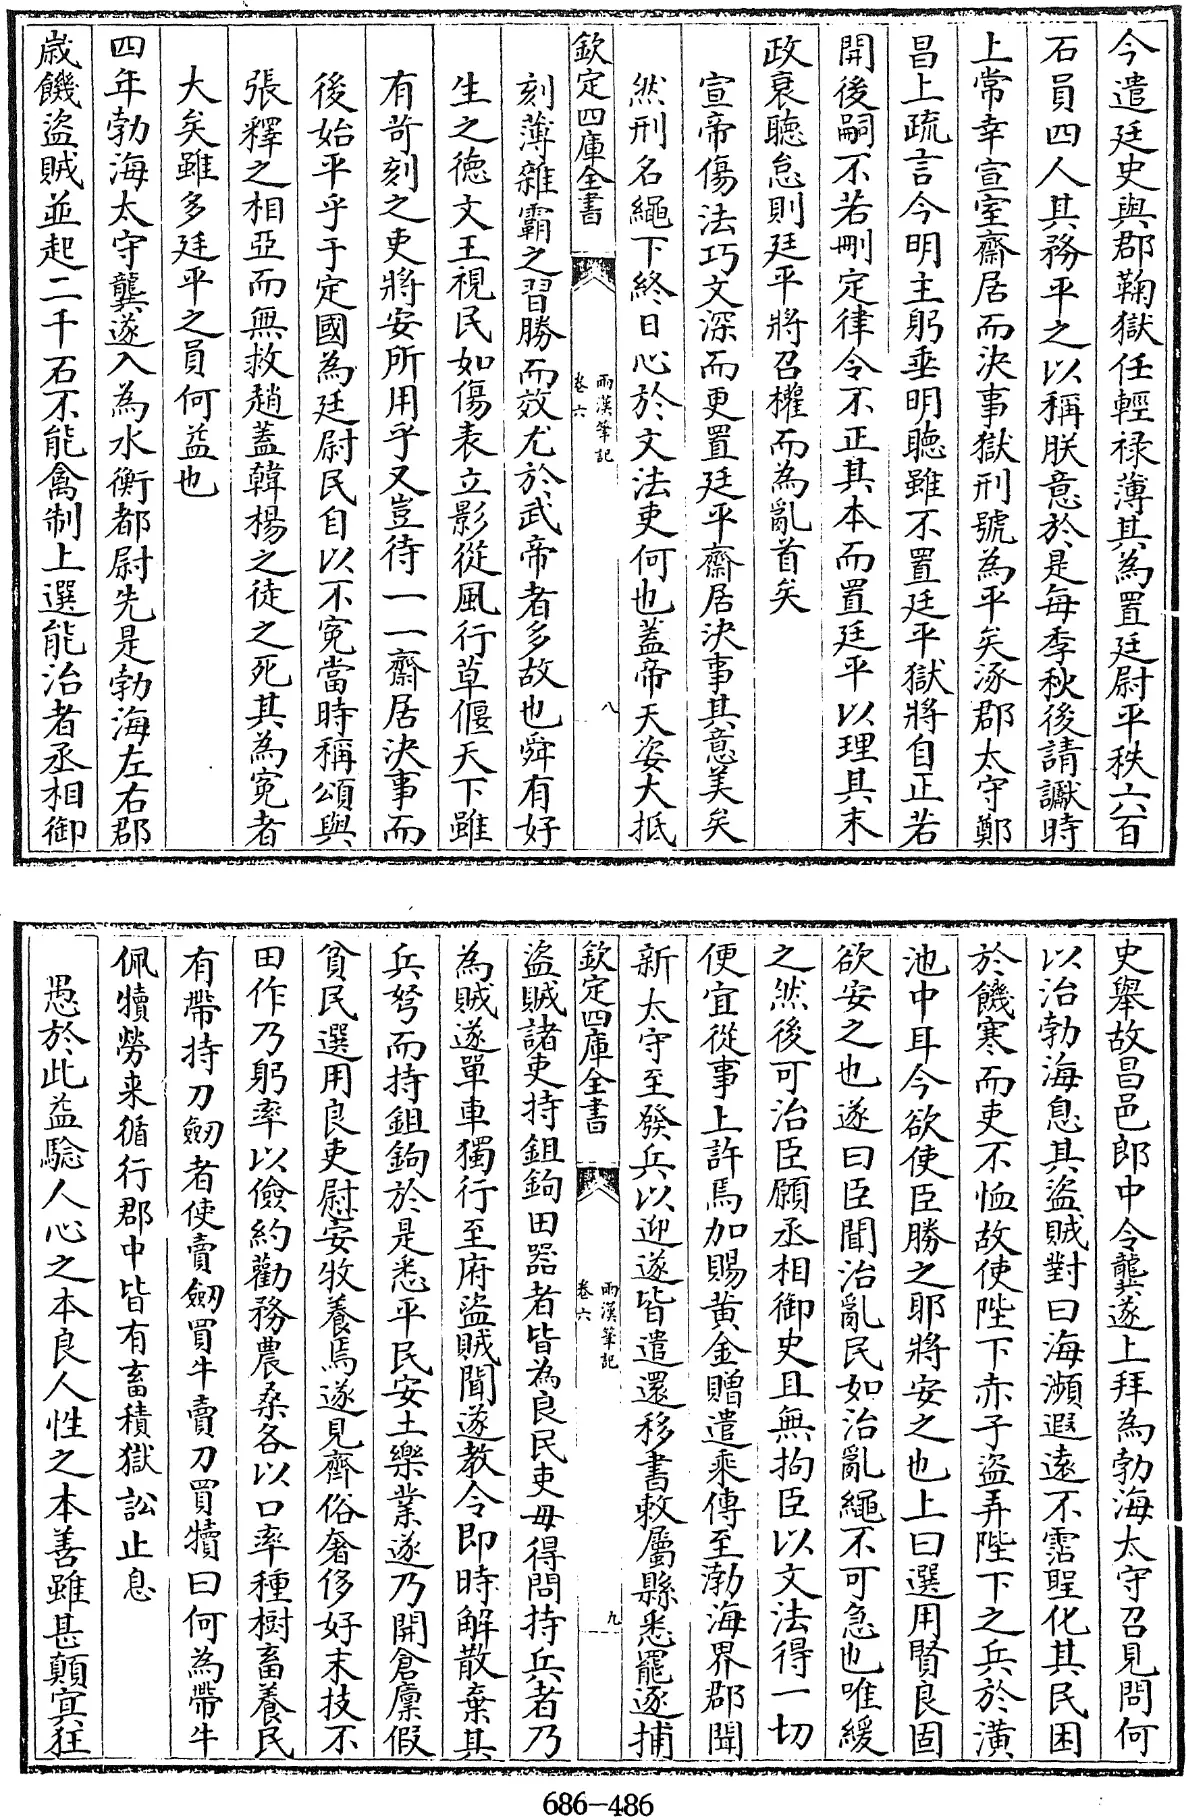 今遣廷史與郡鞠獄任輕禄薄其為置廷尉平秩六百
石員四人其務平之以稱朕意於是每季秋後請讞時
上常幸宣室齋居而決事獄刑號為平矣涿郡太守鄭
昌上疏言今明主躬垂明聽雖不置廷平獄將自正若
開後嗣不若刪定律令不正其本而置廷平以理其末
政衰聽怠則廷平將召權而為亂首矣
宣帝傷法巧文深而更置廷平齋居決事其意美矣
然刑名繩下終日心於文法吏何也蓋帝天姿大抵
欽定四庫全書
兩漢筆記
卷六
八
刻薄雜霸之習勝而效尤於武帝者多故也舜有好
生之德文王視民如傷表立影從風行草偃天下雖
有苛刻之吏將安所用乎又豈待一一齋居決事而
後始平乎于定國為廷尉民自以不寃當時稱頌與
張釋之相亞而無救趙蓋韓楊之徒之死其為寃者
大矣雖多廷平之員何益也
四年勃海太守龔遂入為水衡都尉先是勃海左右郡
歲饑盜賊並起二千石不能禽制上選能治者丞相御
史舉故昌邑郎中令龔遂上拜為勃海太守召見問何
以治勃海息其盜賊對曰海瀕遐遠不霑聖化其民困
於饑寒而吏不恤故使陛下赤子盜弄陛下之兵於潢
池中耳今欲使臣勝之耶將安之也上曰選用賢良固
欲安之也遂曰臣聞治亂民如治亂繩不可急也唯緩
之然後可治臣願丞相御史且無拘臣以文法得一切
便宜從事上許焉加賜黄金贈遣乘傳至渤海界郡聞
新太守至發兵以迎遂皆遣還移書敕屬縣悉罷逐捕
欽定四庫全書
兩漢筆記
卷六
九
盜賊諸吏持鉏鉤田器者皆為良民吏毋得問持兵者乃
為賊遂單車獨行至府盜賊聞遂教令即時解散棄其
兵弩而持鉏鉤於是悉平民安土樂業遂乃開倉廩假
貧民選用良吏尉安牧養焉遂見齊俗奢侈好末技不
田作乃躬率以儉約勸務農桑各以口率種樹畜養民
有帶持刀劒者使賣劒買牛賣刀買犢曰何為帶牛
佩犢勞来循行郡中皆有畜積獄訟止息
愚於此益驗人心之本良人性之本善雖甚顛冥狂
686-486